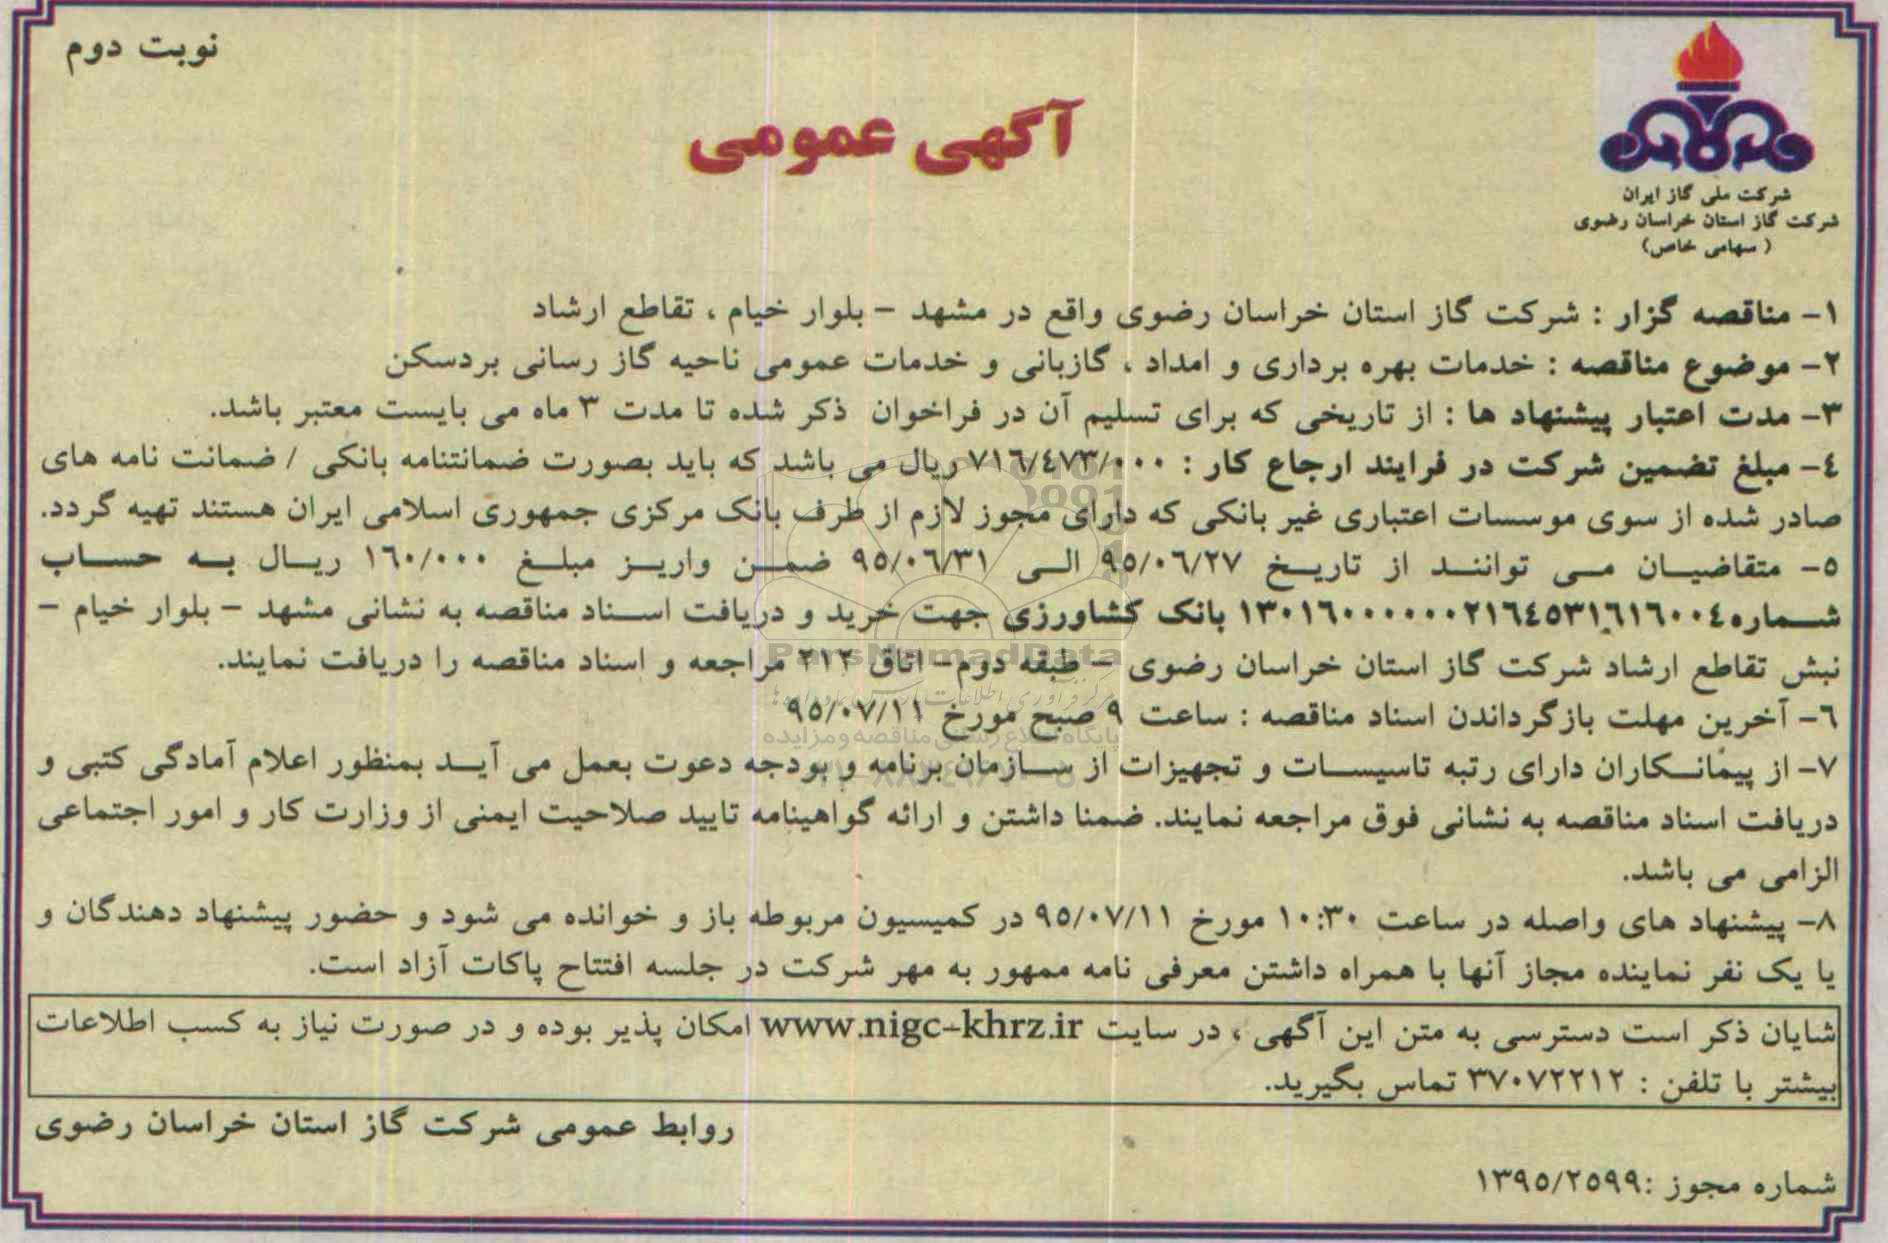 نوبت دوم
آگهی عمومی
شرکت ملی گاز ایران
شرکت گاز استان خراسان رضوی
( سهامی خاص)
۱- مناقصه گزار : شرکت گاز استان خراسان رضوی واقع در مشهد – بلوار خیام ، تقاطع ارشاد
۲- موضوع مناقصه : خدمات بهره برداری و امداد ، گازبانی و خدمات عمومی ناحیه گاز رسانی بردسکن
۳- مدت اعتبار پیشنهاد ها : از تاریخی که برای تسلیم آن در فراخوان ذکر شده تا مدت ۳ ماه می بایست معتبر باشد.
٤- مبلغ تضمین شرکت در فرایند ارجاع کار : ۷۱٦/٤۷۳/۰۰۰ ریال می باشد که باید بصورت ضمانتنامه بانکی / ضمانت نامه های
صادر شده از سوی موسسات اعتباری غیر بانکی که دارای مجوز لازم از طرف بانک مرکزی جمهوری اسلامی ایران هستند تهیه گردد.
٥- متقاضیان می توانند از تاریخ ۹٥/۰٦/۲۷ الی ۹٥/۰٦/۳۱ ضمن واریز مبلغ ۱٦۰/۰۰۰ ریال به حساب
شماره ۱۳۰۱٦۰۰۰۰۰۰۰۲۱٦٤٥۳۱٦۱٦۰۰٤ بانک کشاورزی جهت خرید و دریافت اسناد مناقصه به نشانی مشهد – بلوار خیام –
نبش تقاطع ارشاد شرکت گاز استان خراسان رضوی – طبقه دوم- اتاق ۲۱۲ مراجعه و اسناد مناقصه را دریافت نمایند.
٦- آخرین مهلت بازگرداندن اسناد مناقصه : ساعت ۹ صبح مورخ ۹٥/۰۷/۱۱
۷- از پیمانکاران دارای رتبه تاسیسات و تجهیزات از سازمان برنامه و بودجه دعوت بعمل می آید بمنظور اعلام آمادگی کتبی و
دریافت اسناد مناقصه به نشانی فوق مراجعه نمایند. ضمنا داشتن و ارائه گواهینامه تایید صلاحیت ایمنی از وزارت کار و امور اجتماعی
الزامی می باشد.
۸- پیشنهاد های واصله در ساعت ۱۰:۳۰ مورخ ۹٥/۰۷/۱۱ در کمیسیون مربوطه باز و خوانده می شود و حضور پیشنهاد دهندگان و
یا یک نفر نماینده مجاز آنها با همراه داشتن معرفی نامه ممهور به مهر شرکت در جلسه افتتاح پاکات آزاد است.
شایان ذکر است دسترسی به متن این آگهی ، در سایت www.nigc-khrz.ir امکان پذیر بوده و در صورت نیاز به کسب اطلاعات
بیشتر با تلفن : ۳۷۰۷۲۲۱۲ تماس بگیرید.
روابط عمومی شرکت گاز استان خراسان رضوی
شماره مجوز :۱۳۹٥/۲٥۹۹
ParsNamadData
پایگاه اطلاع رسانی مناقصه و مزایده